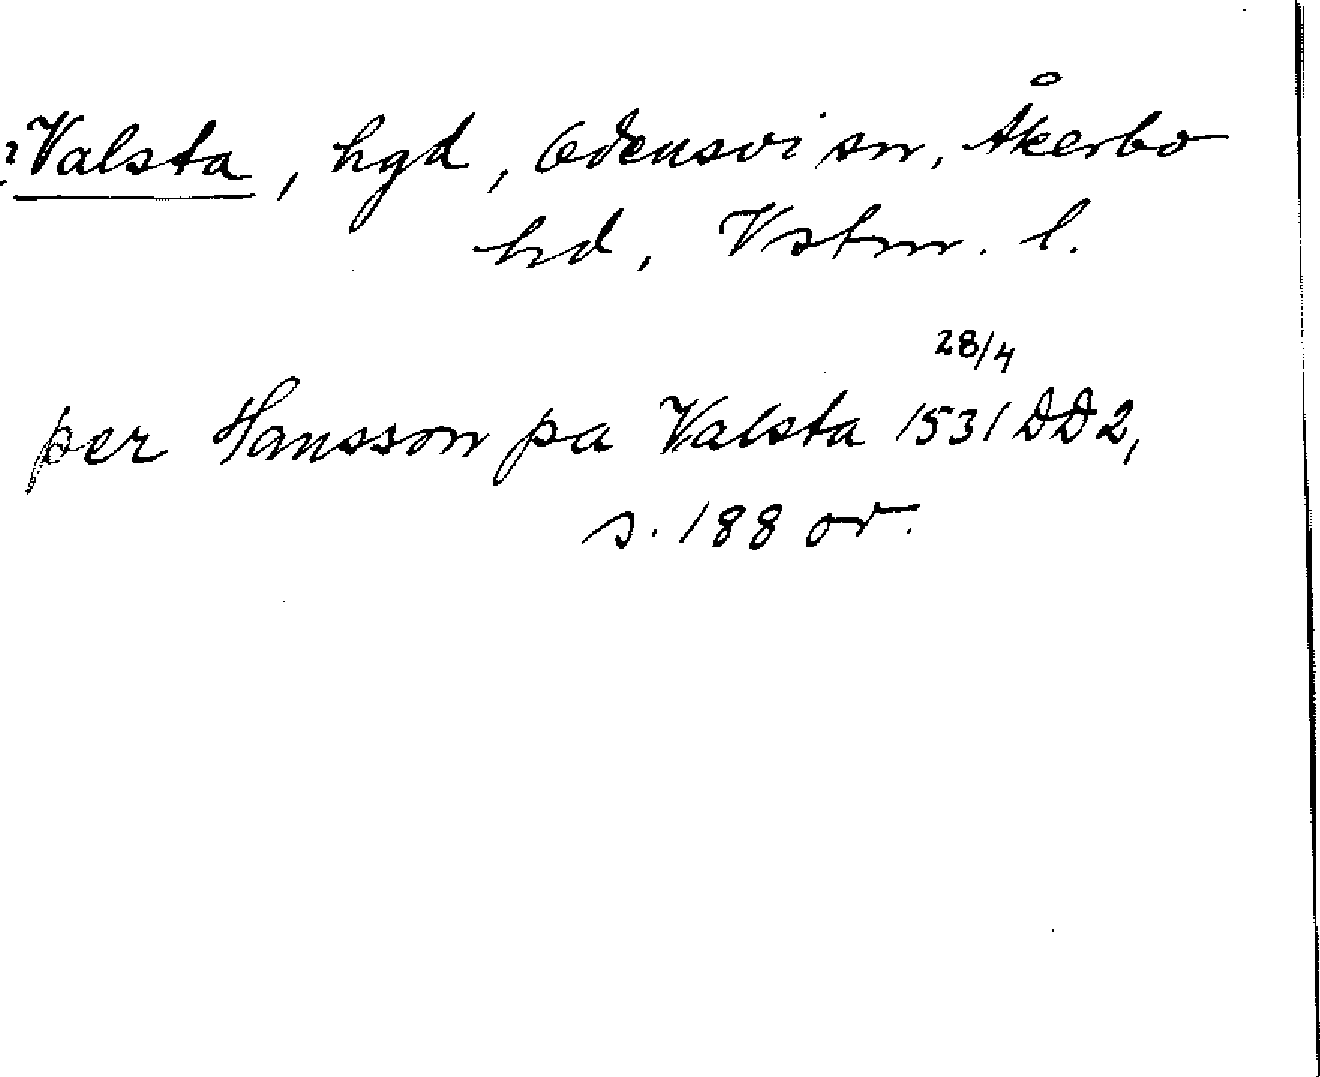 ? Valsta, hgd, Odensvi sn, Åkerbo
hd, Vstm. l.
28/4
per Hansson pa Valsta 1531 DD 2,
s. 188 or.